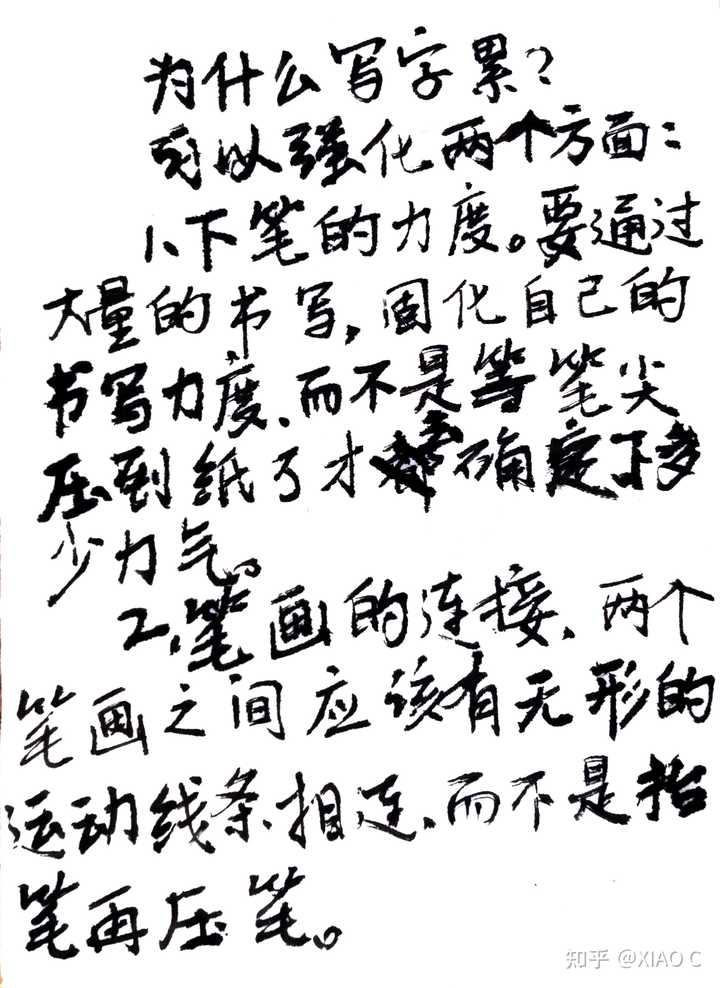 为什么写字累？
可以强化两个方面：
1、下笔的力度。要通过
大量的书写，固化自己的
书写力度、而不是等笔尖
压到纸了才去确定下多
少力气。
2、笔画的连接、两个
笔画之间应该有无形的
运动线条相连、而不是抬
笔再压笔。
知乎 @XIAO C